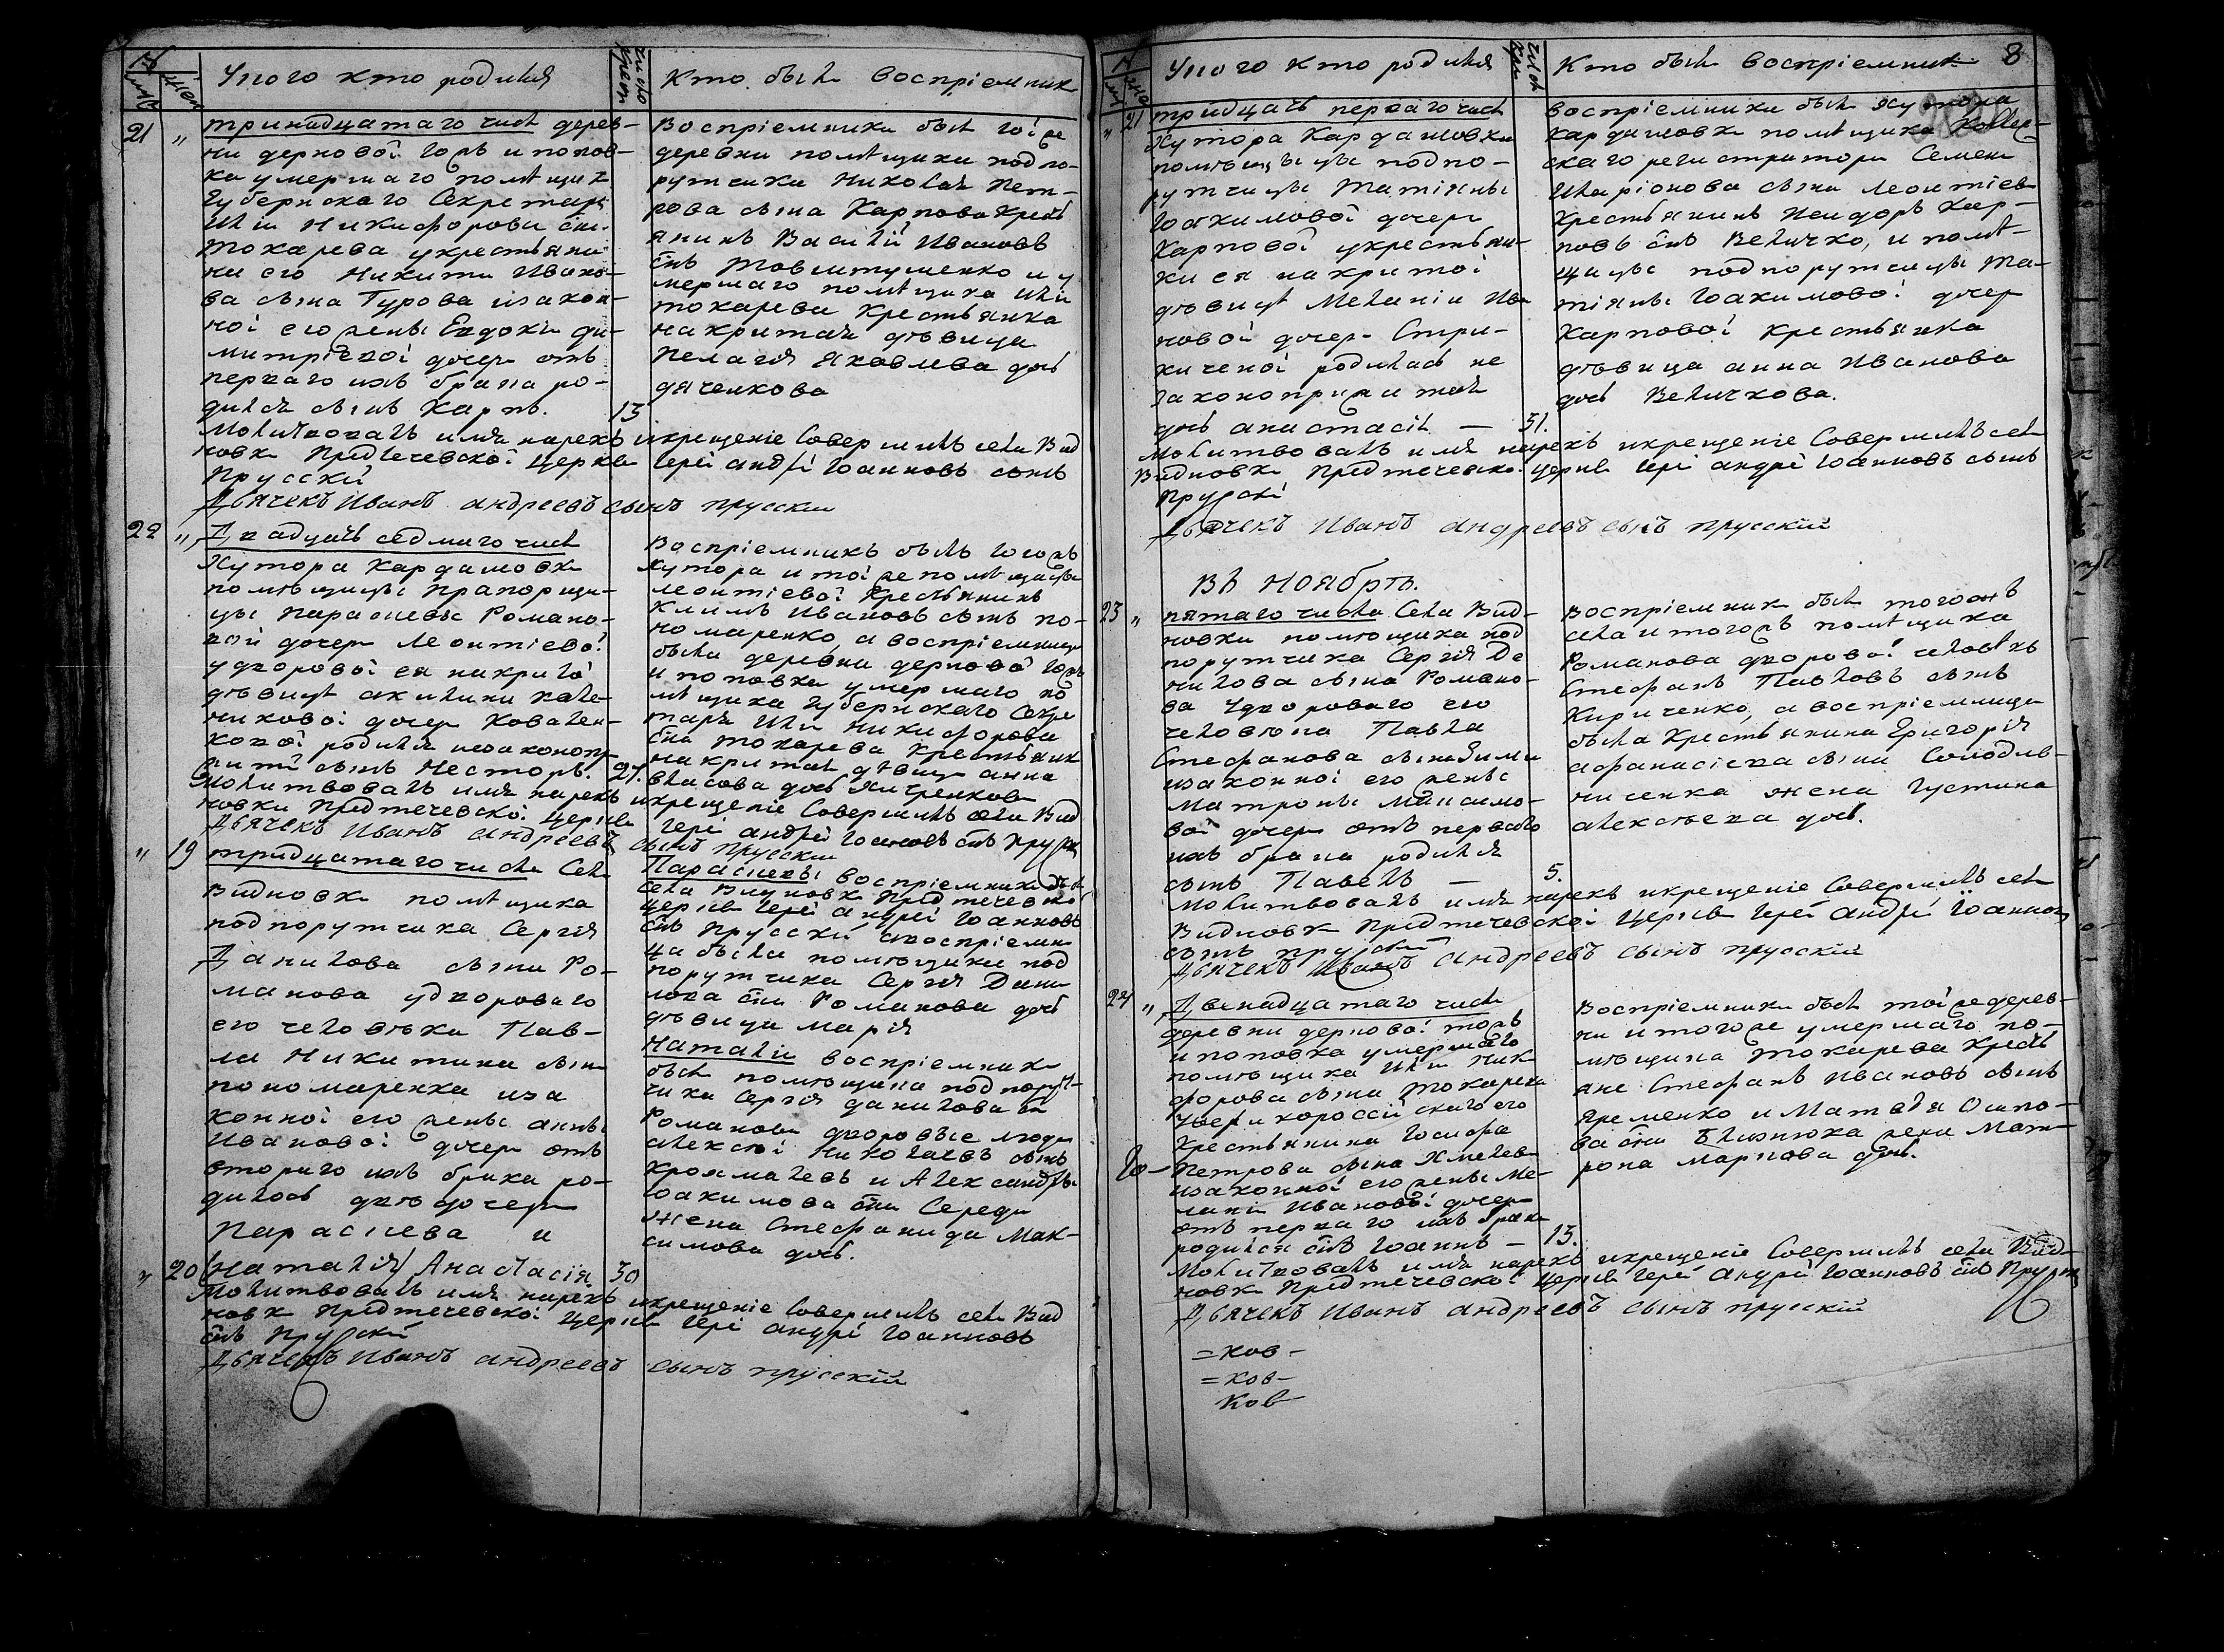 У кого кто родился
Кто былъ восприемник
21 " тринадцатаго числ дерев-
ни дерновой тожъ и попов-
ка умершаго помѣщик
Губернскаго Секретаря
Иліи Никифорови сна
Токарева укрестьяни
на его Никити Ивано-
ва сына Гурова изакон-
ной его жены Евдокіи ди-
митріевой дочери отъ
перваго ихъ брака ро-
дился сынъ Карпъ. 13
Восприемники были тойже
деревни помѣщика подпо-
рутчика Николая Пет-
рова сына Карпова крест
янинъ Василій Ивановъ
снъ Товштушенко и у
мершаго помѣщика Иліи
токарева крестьянка
накритая дѣвица
Пелагія Яковлева дочь
дяченкова
Молитвовалъ имя нарекъ икрещеніе Совершилъ села Вид
новки Предтечевской церкви Іерей андрѣй Іоанновъ сынъ
Прусскій
Дьячекъ Иванъ андреевъ сынъ прусскій
22 " Двадцать седмаго числ
Хутора Кардашовки
помѣщицы Прапорщи-
цы Параскевы Романо-
вой дочери Леонтіевой
удворовой ея накритой
дѣвицы акилини кале-
никовой дочери Ковален-
ковой родился незаконопр
житй сынъ Несторъ. 27.
Восприемникъ былъ тогожъ
хутора и тойже помѣщицы
леонтіевой Крестьянинъ
Климъ Ивановъ сынъ по-
номаренко, а восприемница
была деревни дерновой тожъ
и поповки умершаго по
мѣщика губернскаго Секре
таря Иліи Никифорова
сна токарева Крестьянк
накритая дѣвица анна
власова дочь
Молитвовалъ имя нарекъ икрещеніе Совершилъ села Вид
новки Предтечевской церкви Іерей андрѣй Іоанновъ снъ Прусскій
Дьячекъ Иванъ андреевъ сынъ прусскій
" 19 тридцатаго числа Села
Видновки помѣщика
подпорутчика Сергія
Данилова сына Ро-
манова удворового
его человѣка Пав-
ла Никитина сына
пономаренка иза
конной его жены анны
Ивановой дочери отъ
второго ихъ брака ро-
дилось двѣ дочери
Параскева и
" 20 (Наталія) Анастасія. 30
Параскевы восприемники был
села Видновки Предтечевской
церкви Іерей андрей Іоанновъ
снъ Прусскій авосприемни
ца была помѣщика под
порутчика Сергія Дани
лова сна Романова дочь
дѣвица марія
Наталіи восприемники
были помѣщика подпорут-
чика Сергія данилова сн
Романова дворовые люди
алексѣй Николаевъ сынъ
и Александры
Іоакимова сна Середы
жена Стефанида Мак-
симова дочь.
Молитвовалъ имя нарекъ икрещеніе Совершилъ села Вид
новки Предтечевской Церкви Іерей андрѣй Іоанновъ
снъ Прусскій
Дьячекъ Иванъ андреевъ сынъ прусскій
У кого кто родился
Кто былъ восприемник 8
" 21 тридцать перваго числ
Хутора Кардашовки
помѣщицы подпо-
рутчицы Татіяны
Іоакимовой дочери
Карповой укрестьян-
ки ея накритой
дѣвицы Меланіи Ива
новой дочери Стри-
жиченой родилась не
законоприжитая
дочь анастасія — 31.
восприемники были хутора
кардашовки помѣщика Коллеж-
скаго регистратора Семена
Иларіонова сына леонтіева
крестьянинъ Исидоръ кар-
повъ снъ Величко, и помѣ-
щицы подпорутчицы Та-
тіяны Іоакимовой дочери
Карповой крестьянка
дѣвица анна Иванова
дочь Величкова.
Молитвовалъ имя нарекъ икрещеніе Совершилъ села
Видновки Предтечевской церкви Іерей андрѣй Іоанновъ сынъ
Прусскій
Дьячекъ Иванъ андреевъ сынъ прусскій
Въ Ноябрѣ.
23 " пятаго числа Села Вид-
новки помѣщика под
порутчика Сергія Да
нилова сына Романо-
ва удворового его
человѣка Павла
Стефанова сына
изаконной его жены
Матроны Максимо-
вой дочери отъ перваго
ихъ брака родился
сынъ Павелъ — 5.
Восприемник былъ тогожъ
села и тогожъ помѣщика
Романова дворовой человѣкъ
Стефанъ Павловъ сынъ
Кириченко, а восприемница
была Крестьянина Григорія
афанасіева сына Солодив-
ниченка жена Густина
алексѣева дочь.
Молитвовалъ имя нарекъ икрещеніе Совершилъ села
Видновки Предтечевской Церкви Іерей Андрѣй Іоанновъ
сынъ прусскій
Дьячекъ Иванъ андреевъ сынъ прусскій
24 " Двенадцатаго числ
деревни дерновой тожъ
и поповка умершаго
помѣщика Иліи Ники
форова сына токарева
его
Крестьянина Іосифа
Петрова сына Хмелев
изаконной его жены Ме-
ланіи Ивановой дочери
отъ перваго ихъ брака
родился снъ Іоаннъ — 13.
Восприемники были тойже дерев-
ни и тогоже умершаго по-
мѣщика токарева Кресть
яне Стефанъ Ивановъ сынъ
яременко и Матвѣя Осипо-
ва сна Близнюка жена Мат-
рона маркова дочь.
Молитвовалъ имя нарекъ икрещеніе Совершилъ села Вид-
новки Предтечевской Церкви Іерей Андрѣй Іоанновъ снъ Прусскій
Дьячекъ Иванъ андреевъ сынъ прусскій
=ков-
=ков-
Ков